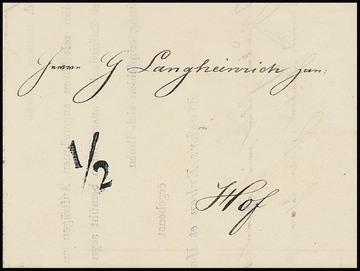 Herrn G Langheinrich jun:
1/2
Hof